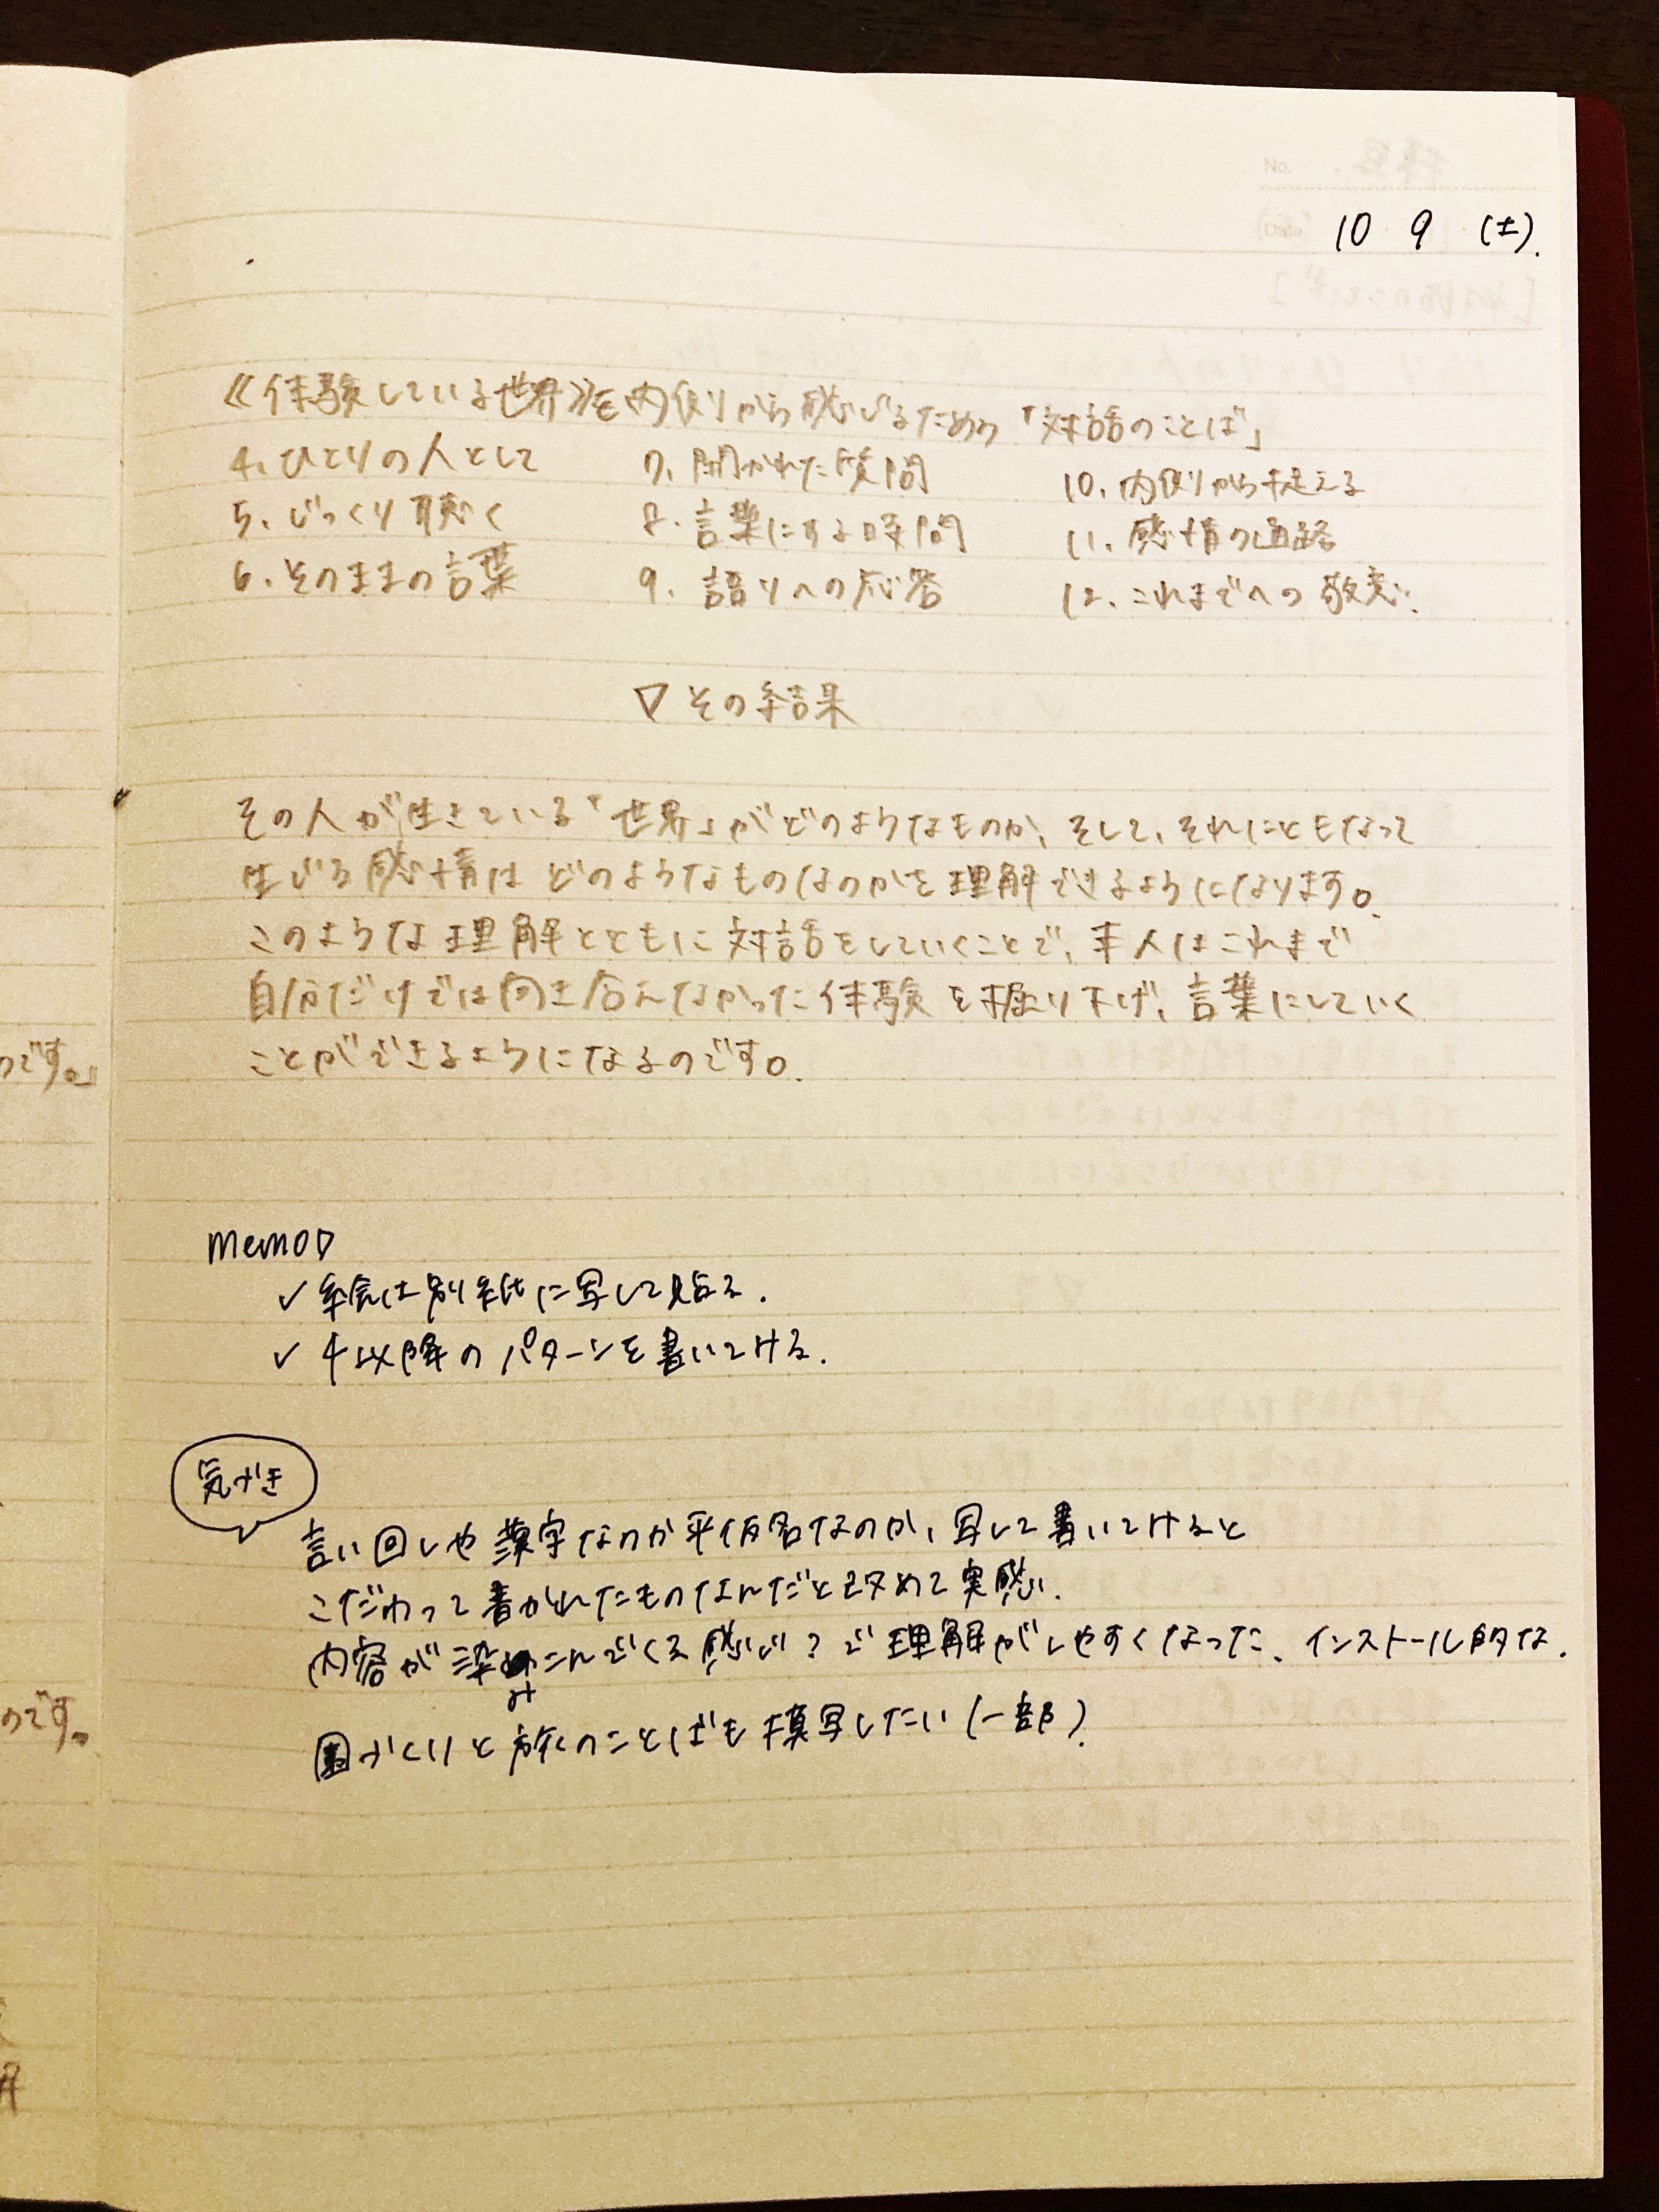 10 9 (土).
《体験している世界》を内側から感じるための「対話のことば」
4. ひとりの人として 7. 開かれた質問 10. 内側から捉える
5. じっくり聴く 8. 言葉にする時間 11. 感情の通路
6. そのままの言葉 9. 語りへの応答 12. これまでへの敬意.
▽ その結果
その人が生きている「世界」がどのようなものか、そして、それにともなって
生じる感情はどのようなものなのかを理解できるようになります。
このような理解とともに対話をしていくことで、本人はこれまで
自分だけでは向き合えなかった体験を掘り下げ、言葉にしていく
ことができるようになるのです。
memo▷
✓ 絵は別紙に写して貼る.
✓ 4以降のパターンを書いてける.
気づき
言い回しや漢字なのか平仮名なのか、写して書いてけると
こだわって書かれたものなんだと改めて実感.
内容が染みこんでくる感じ?で理解がしやすくなった、インストール的な.
園づくりと旅のことばも模写したい(一部)
のです。」
のです。